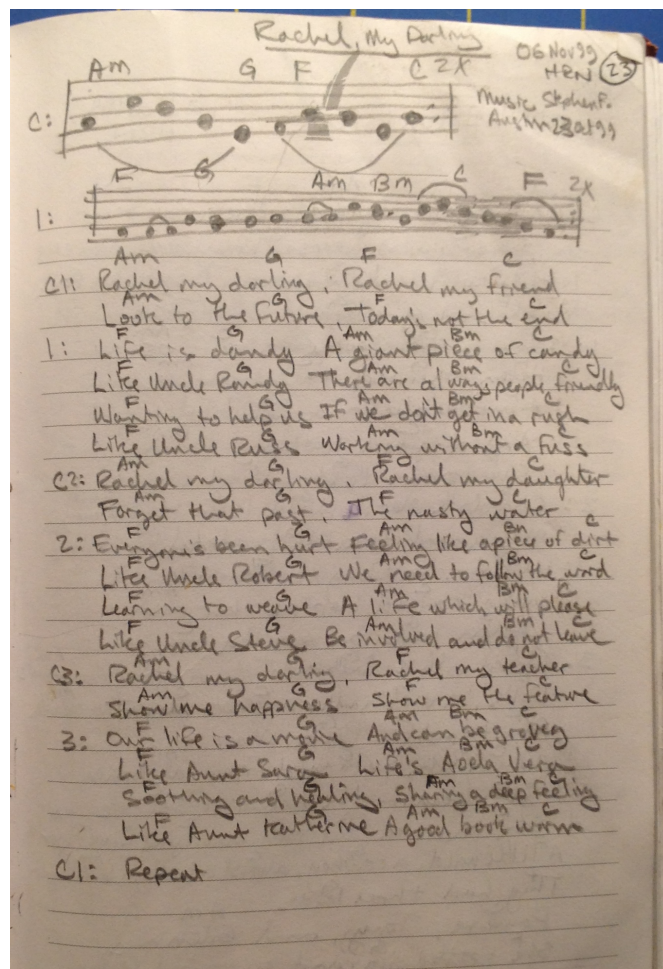 Rachel, My Darling
06 Nov 99
HRN 23
Am G F C 2X
Music Stephen P.
Austin 23 Oct 99
C:
F G Am Bm C F 2X
1:
Am G F C
C1: Rachel my darling, Rachel my friend
Am G F C
Look to the future, Today's not the end
F G Am Bm C
1: Life is dandy A giant piece of candy
F G Am Bm C
Like Uncle Randy There are always people friendly
F G Am Bm C
Wanting to help us If we don't get in a rush
F G Am Bm C
Like Uncle Russ Working without a fuss
Am G F C
C2: Rachel my darling, Rachel my daughter
Am G F C
Forget that past, The nasty water
F G Am Bm C
2: Everyone's been hurt Feeling like a piece of dirt
F G Am Bm C
Like Uncle Robert We need to follow the word
F G Am Bm C
Learning to weave A life which will please
F G Am Bm C
Like Uncle Steve Be involved and do not leave
Am G F C
C3: Rachel my darling, Rachel my teacher
Am G F C
Show me happness Show me the feature
F G Am Bm C
3: Our life is a movie And can be groovy
F G Am Bm C
Like Aunt Sara Life's Aoela Vera
F G Am Bm C
Soothing and healing, Sharing a deep feeling
F G Am Bm C
Like Aunt Katherine A good book worm
C1: Repeat